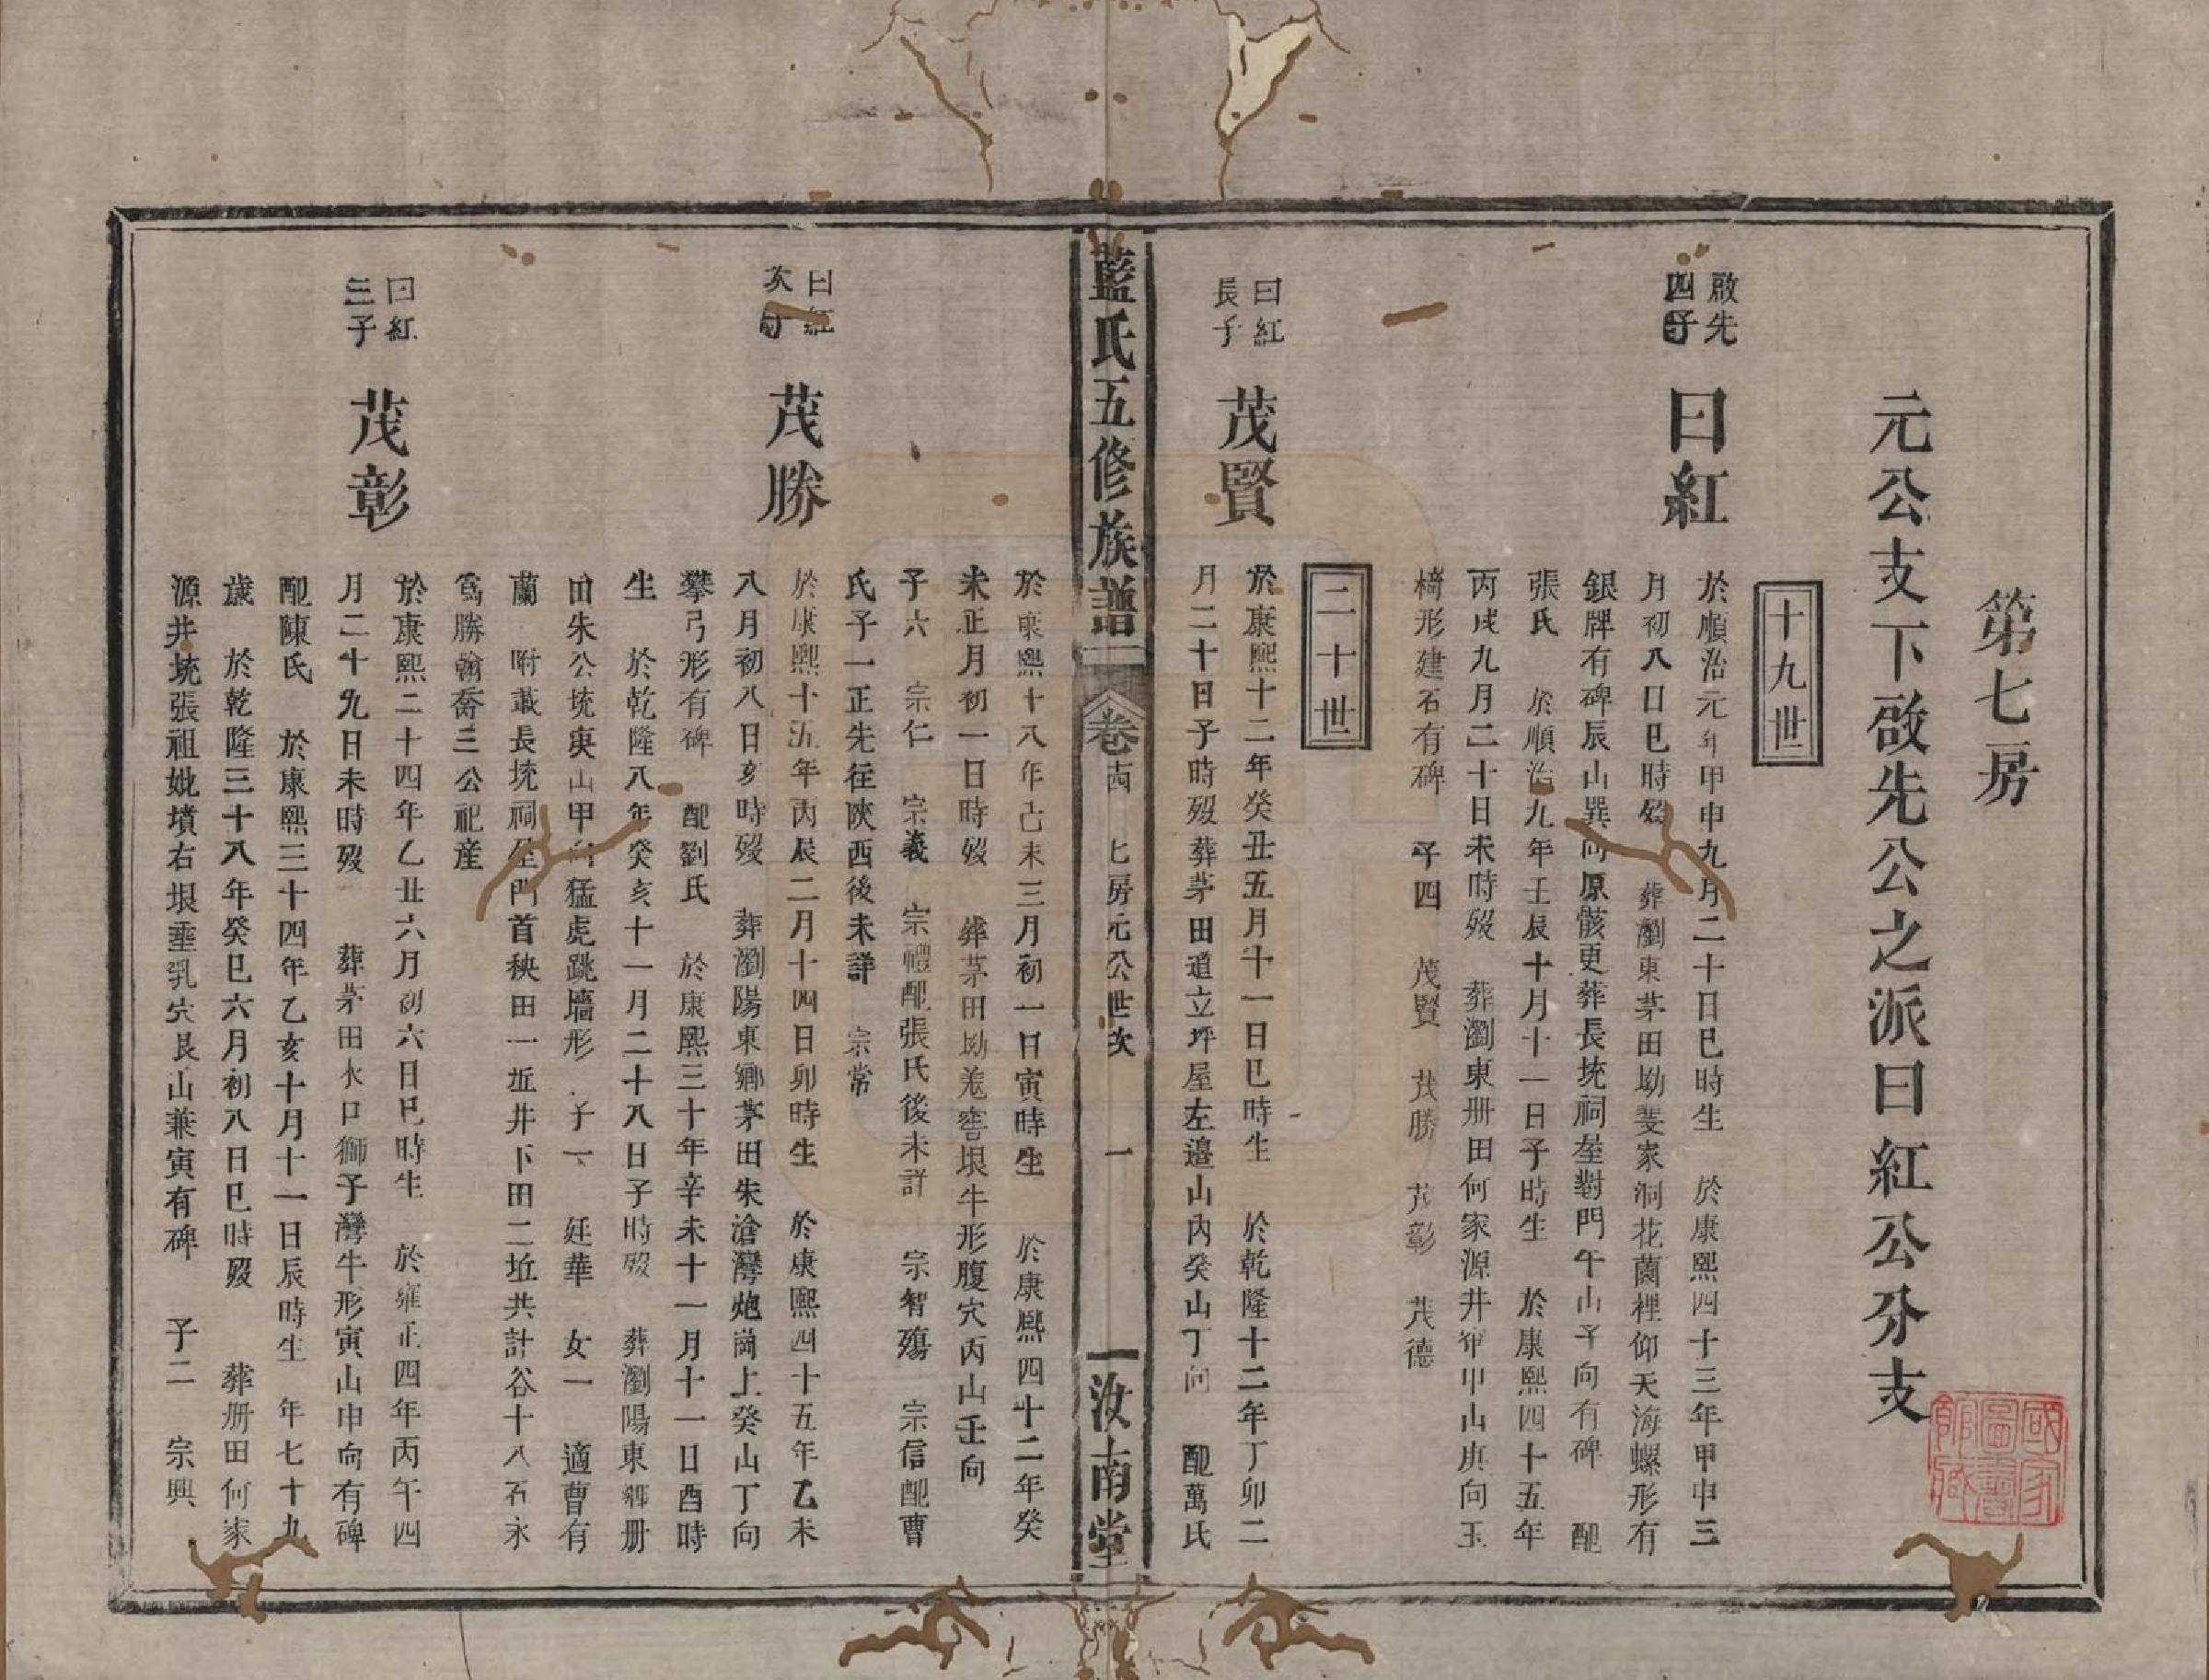 第七房
元公支下啟先公之派曰紅公分支
十九世
啟先
四子
曰紅
於順治元年甲申九月二十日巳時生　於康熙四十三年甲申三
月初八日巳時歿　葬瀏東茅田坳斐家洞花薗裡仰天海螺形有
銀牌有碑辰山巽向原骸更葬長垅祠堂對門午山子向有碑　配
張氏　於順治九年壬辰十月十一日子時生　於康熙四十五年
丙戌九月二十日未時歿　葬瀏東册田何家源井窂甲山庚向玉
椅形建石有碑　子四　茂賢　茂勝　茂彰　茂德
二十世
曰紅
長子
茂賢
於康熙十二年癸丑五月十一日巳時生　於乾隆十二年丁卯二
月二十日子時歿葬茅田道立坪屋左邉山内癸山丁向　配萬氏
藍氏五修族譜
卷十四　七房元公世次　一
汝南堂
於康熙十八年己未三月初一日寅時生　於康熙四十二年癸
未正月初一日時歿　葬茅田坳羗窖垠牛形腹穴丙山壬向
子六　宗仁　宗義　宗禮配張氏後未詳　宗智殤　宗信配曹
氏子一正先徃陝西後未詳　宗常
曰紅
次子
茂勝
於康熙十五年丙辰二月十四日卯時生　於康熙四十五年乙未
八月初八日亥時歿　葬瀏陽東鄉茅田朱滄灣炮崗上癸山丁向
攀弓形有碑　配劉氏　於康熙三十年辛未十一月十一日酉時
生　於乾隆八年癸亥十一月二十八日子時歿　葬瀏陽東鄉册
田朱公垅庚山甲向猛虎跳墻形　子一　廷華　女一　適曹有
蘭　附載長垅祠堂門首秧田一坵井下田二坵共計谷十八石永
爲勝翰喬三公祀産
曰紅
三子
茂彰
於康熙二十四年乙丑六月初六日巳時生　於雍正四年丙午四
月二十九日未時歿　葬茅田水口獅子灣牛形寅山申向有碑
配陳氏　於康熙三十四年乙亥十月十一日辰時生　年七十九
歲　於乾隆三十八年癸巳六月初八日巳時歿　葬册田何家
源井垅張祖妣墳右垠垂乳穴艮山兼寅有碑　子二　宗興
國家圖書館藏